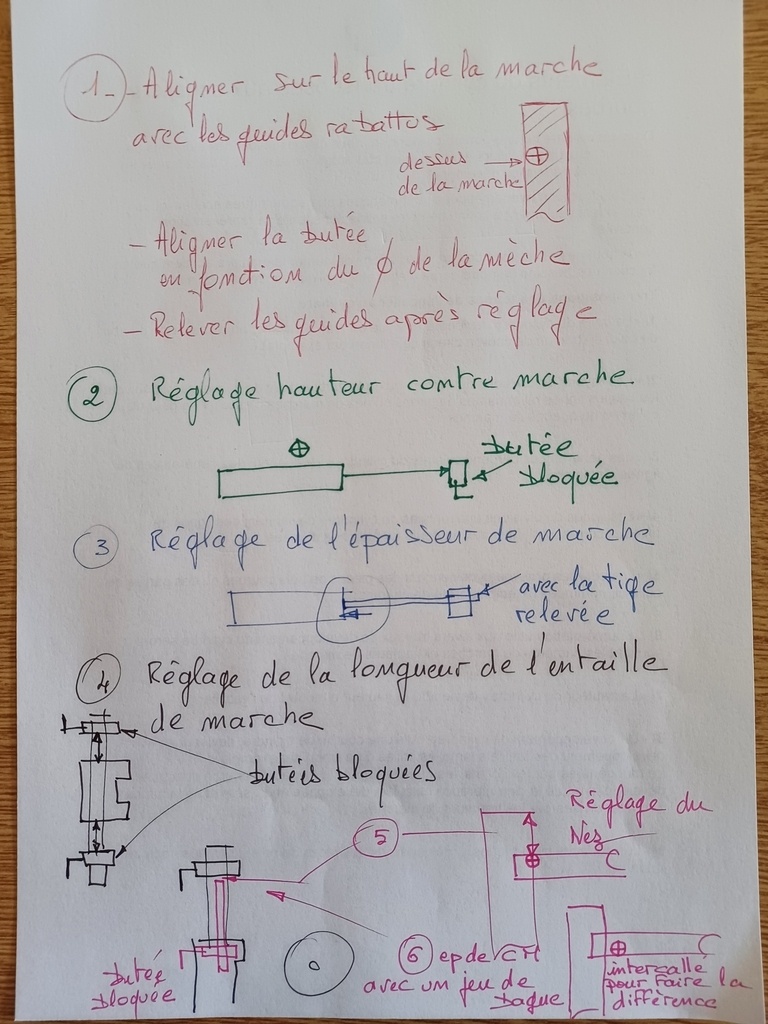 1- - Aligner sur le haut de la marche
avec les guides rabattus
dessus
de la marche
- Aligner la butée
en fonction du ϕ de la mèche
- Relever les guides après réglage
2 Réglage hauteur contre marche
butée
bloquée
3 Réglage de l'épaisseur de marche
avec la tige
relevée
4 Réglage de la longueur de l'entaille
de marche
butées bloquées
5
Réglage du
Nez
6 ep de CM
avec un jeu de
bague
butée
bloquée
intercallé
pour faire la
différence